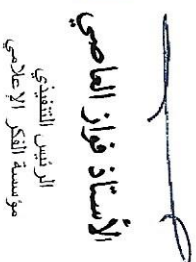 الأستاذ فواز العاصي
الرئيس التنفيذي
مؤسسة الفكر الإعلامي